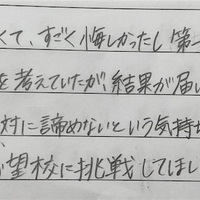 くて、すごく悔しかったし第一
を考えていたが、結果が届い
対に諦めないという気持
望校に挑戦してほし